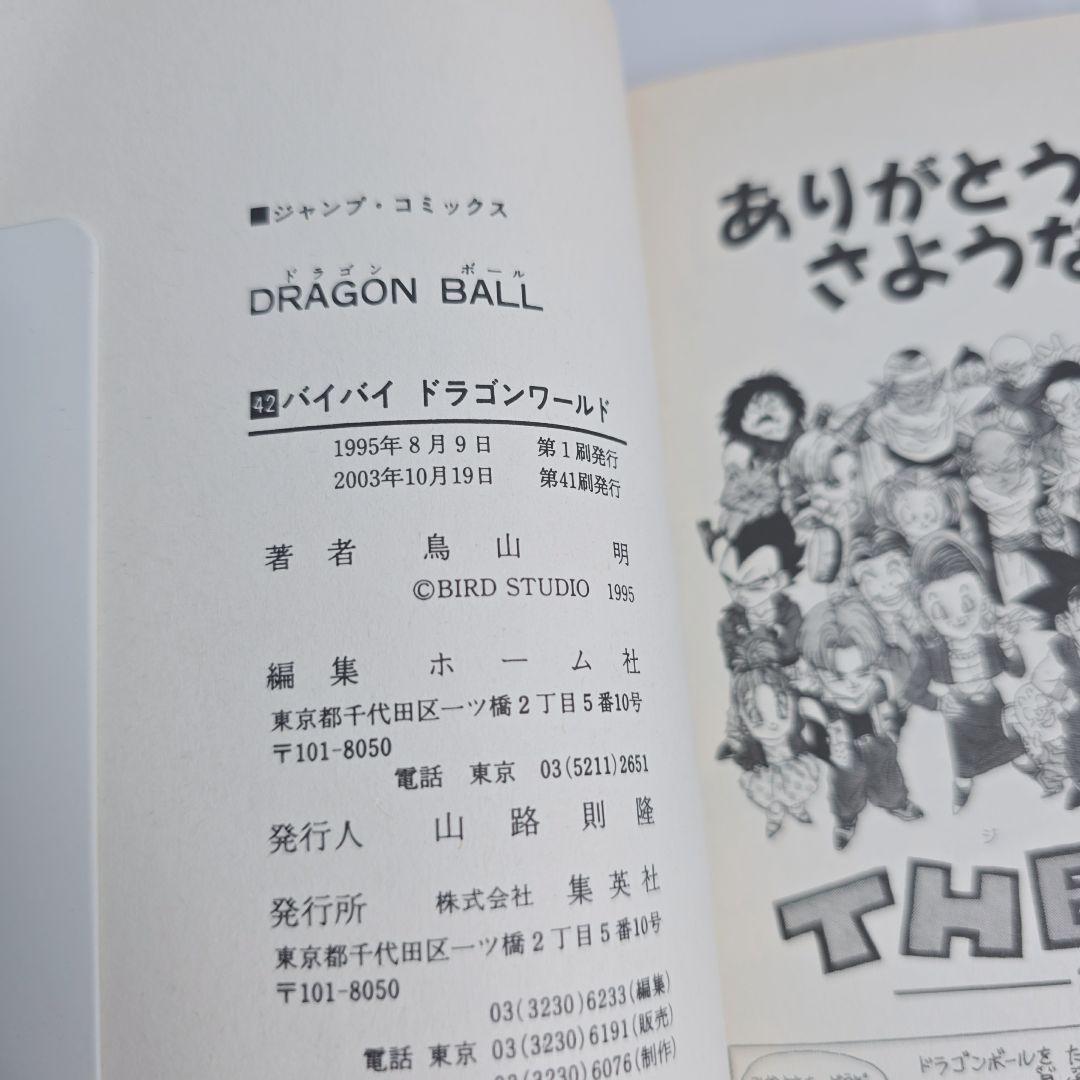 ■ジャンプ・コミックス
ドラゴン ボール
DRAGON BALL
42バイバイ ドラゴンワールド
1995年8月9日 第1刷発行
2003年10月19日 第41刷発行
著者 鳥山 明
©BIRD STUDIO 1995
編集 ホーム社
東京都千代田区一ツ橋2丁目5番10号
〒101-8050
電話 東京 03(5211)2651
発行人 山路則隆
発行所 株式会社 集英社
東京都千代田区一ツ橋2丁目5番10号
〒101-8050
03(3230)6233(編集)
電話 東京 03(3230)6191(販売)
03(3230)6076(制作)
ありがとう
さような
ジ
THE
ドラゴンボールを